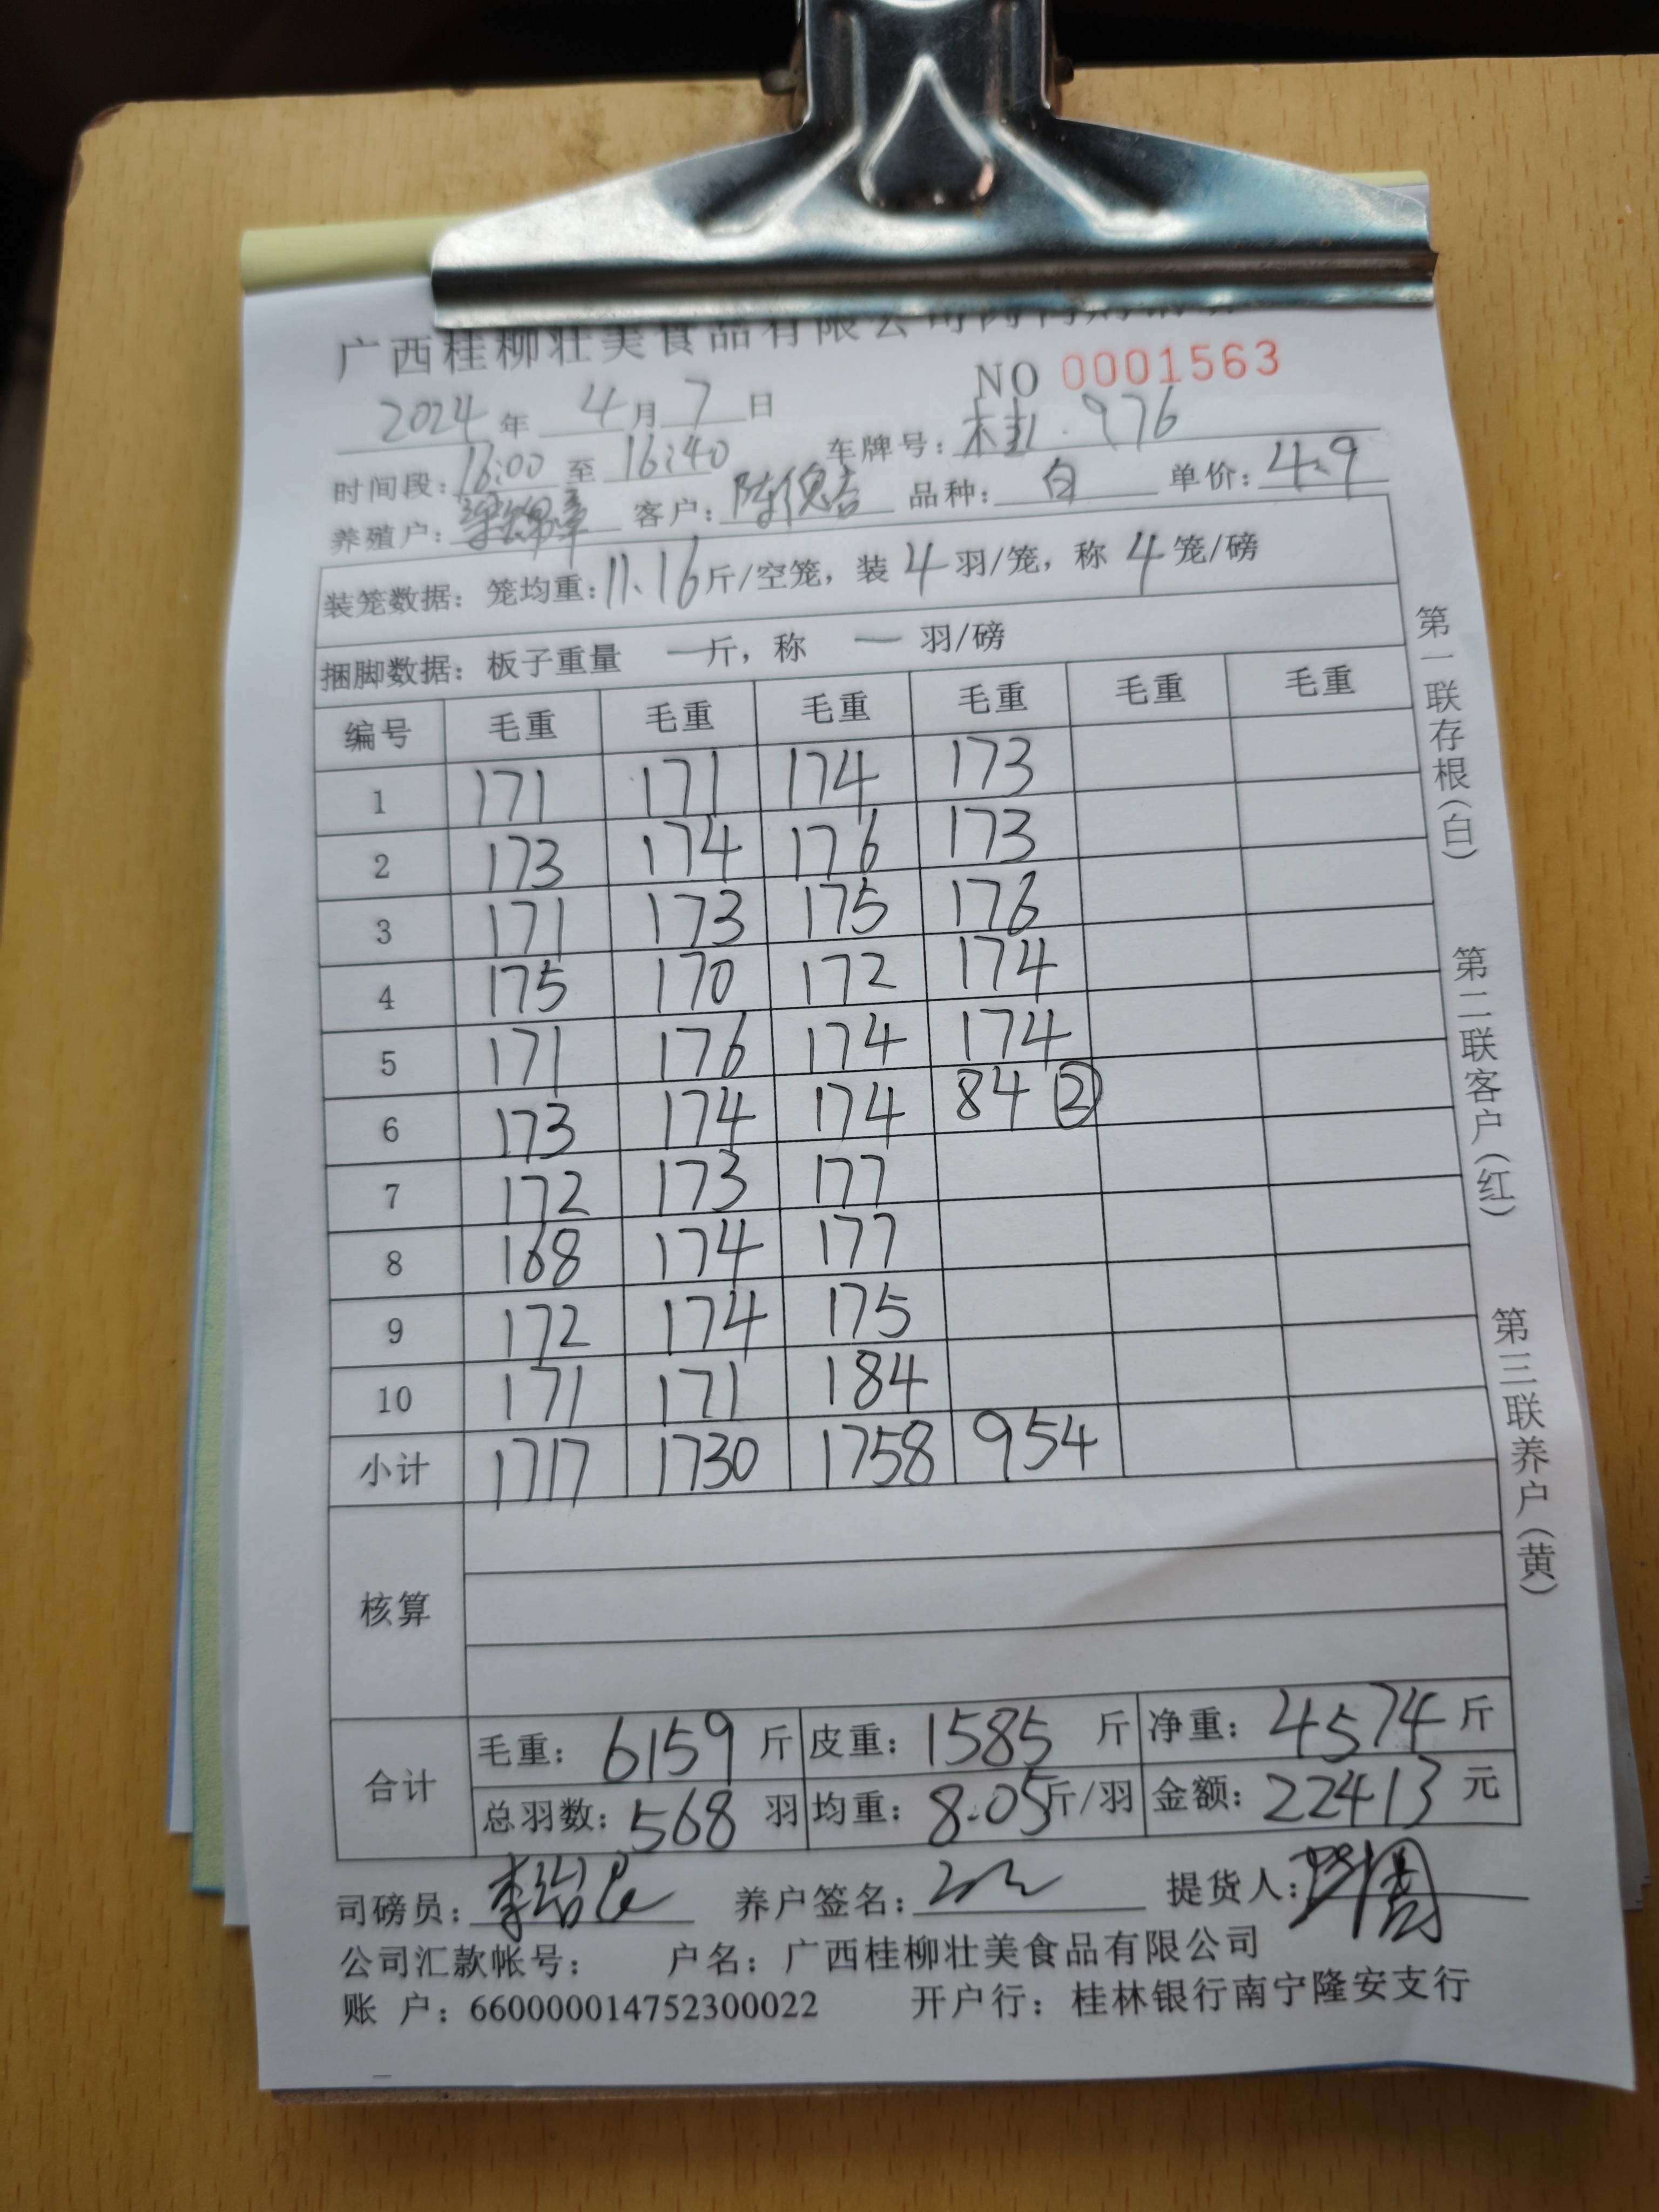 广西桂柳壮美食品有限公司
NO 0001563
2024 年 4 月 7 日
时间段: 16:00 至 16:40 车牌号: 桂.976
养殖户: 梁锦章 客户: 陈德吉 品种: 白 单价: 4.9
装笼数据: 笼均重: 11.16 斤/空笼, 装 4 羽/笼, 称 4 笼/磅
捆脚数据: 板子重量 一 斤, 称 一 羽/磅
编号 毛重 毛重 毛重 毛重 毛重 毛重
1 171 171 174 173
2 173 174 176 173
3 171 173 175 176
4 175 170 172 174
5 171 176 174 174
6 173 174 174 84 ②
7 172 173 177
8 168 174 177
9 172 174 175
10 171 171 184
小计 1717 1730 1758 954
核算
合计 毛重: 6159 斤 皮重: 1585 斤 净重: 4574 斤
总羽数: 568 羽 均重: 8.05 斤/羽 金额: 22413 元
司磅员: 养户签名: 提货人:
公司汇款帐号: 户名: 广西桂柳壮美食品有限公司
账 户: 660000014752300022 开户行: 桂林银行南宁隆安支行
第一联存根(白)
第二联客户(红)
第三联养户(黄)